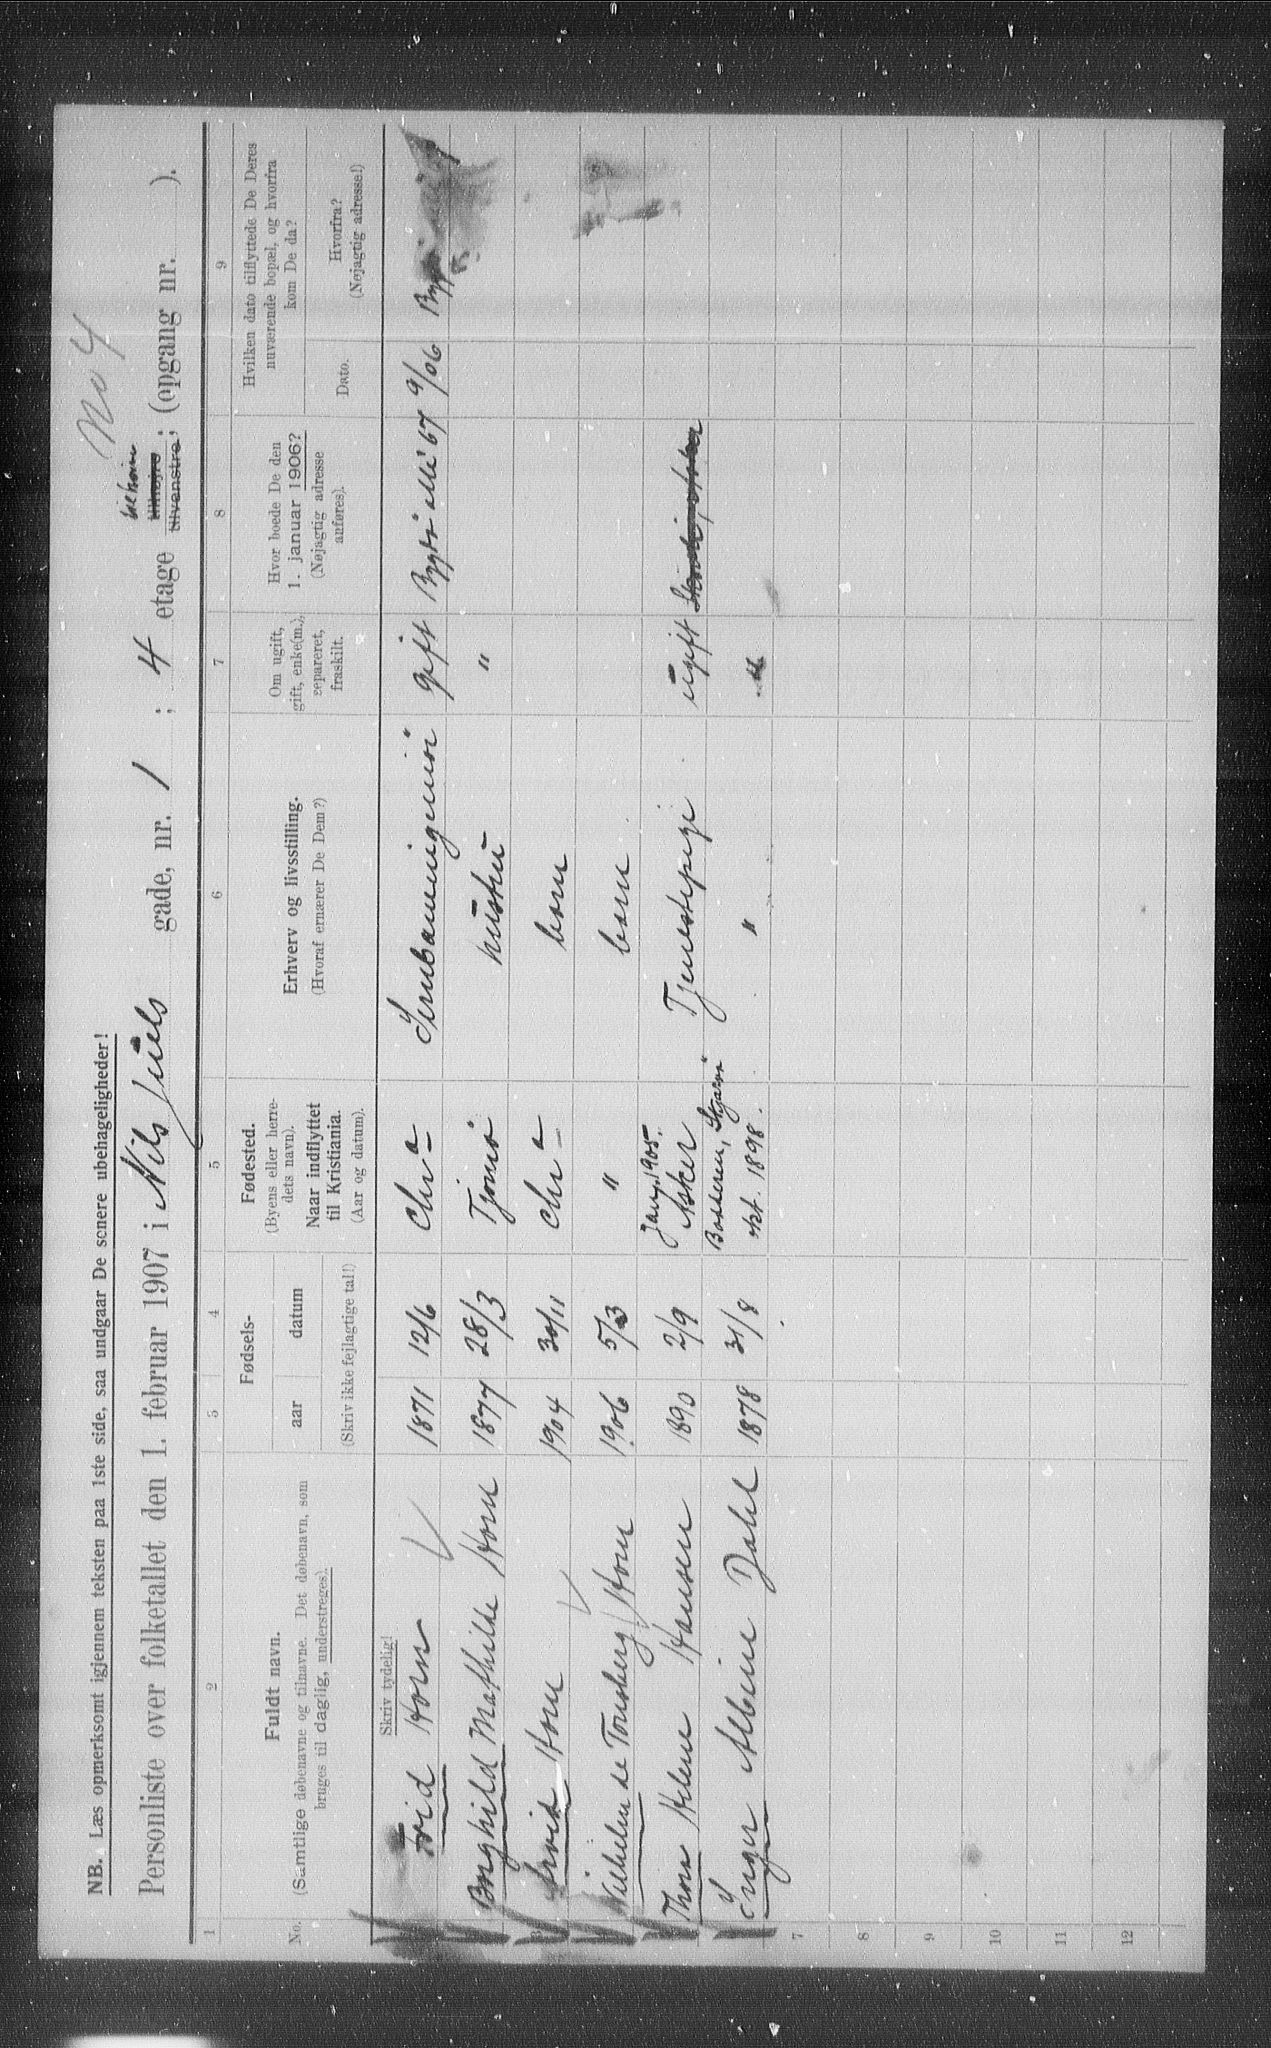 No 4
NB. Læs opmerksomt igjennem teksten paa 1ste side, saa undgaar De senere ubehageligheder!
Personliste over folketallet den 1. februar 1907 i Nils Juels gade, nr. 1 ; 4 etage tilhøire tilhøjre tilvenstre; (opgang nr. ).
1 2 3 4 5 6 7 8 9
No.
Fuldt navn.
(Samtlige døbenavne og tilnavne. Det døbenavn, som
bruges til daglig, understreges).
Skriv tydelig!
Fødsels-
aar datum
(Skriv ikke fejlagtige tal!)
Fødested.
(Byens eller herre-
dets navn).
Naar indflyttet
til Kristiania.
(Aar og datum).
Erhverv og livsstilling.
(Hvoraf ernærer De Dem?)
Om ugift,
gift, enke(m.),
separeret,
fraskilt.
Hvor boede De den
1. januar 1906?
(Nøjagtig adresse
anføres).
Hvilken dato tilflyttede De Deres
nuværende bopæl, og hvorfra
kom De da?
Dato.
Hvorfra?
(Nøjagtig adresse!)
Horn 1871 12/6 Chr.a Jernbaneingeniør gift Bygdø allé 67 9/06
Borghild Mathilde Horn 1877 28/3 Tjømø hustru "
Horn 1904 30/11 Chr.a barn
Vilhelm de Tonsberg Horn 1906 5/3 " barn
Jan. 1905.
Thora Helene Hansen 1890 2/9 Asker Tjenestepige ugift
Inger Albine Dahl 1878 31/8 okt. 1898. " "
7
8
9
10
11
12